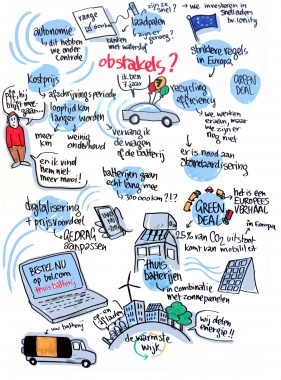 range
of doolhof
zijn ze snel?
laadpalen
zijn er genoeg?
tanken met waterstof
we investeren in
snelladers
bv. ionity
autonomie
dit hebben
we onder
controle
obstakels?
striktere regels
in Europa
GREEN
DEAL
kostprijs
afschrijvingsperiode
looptijd kan
langer worden
ik ben
7 jaar
recycling
efficiency
we werken
eraan, maar
we zijn er
nog niet
pff, hij
blijft mee
gaan...
meer
km
weinig
onderhoud
vervang ik
de wagen
of de batterij
er is nood aan
standaardisering
en ik vind
hem niet
meer mooi!
batterijen gaan
echt lang mee
300 000 km?!?
digitalisering
+ prijsvoordeel
GEDRAG
aanpassen
GREEN
DEAL
het is een
EUROPEES
VERHAAL
in Europa
25% van CO2 uitstoot
komt van mobiliteit
BESTEL NU
op bol.com
thuisbatterij
THUIS
batterijen
in combinatie
met zonnepanelen
uw batterij
op en
afladen
wij delen
energie!!
de warmste
wijk